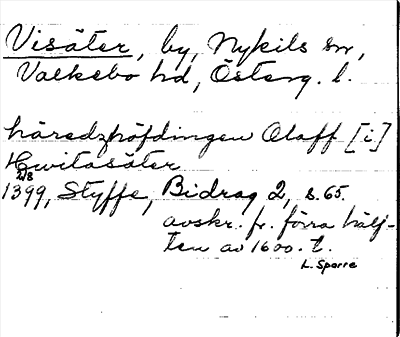 Visäter, by, Nykils sn,
Valkebo hd, Österg. l.
häradzhöfdingen Olaff [i]
Hwitasäter
2/8
1399, Styffe, Bidrag 2, s. 65.
avskr. fr. förra hälf-
ten av 1600-t.
L. Sparre